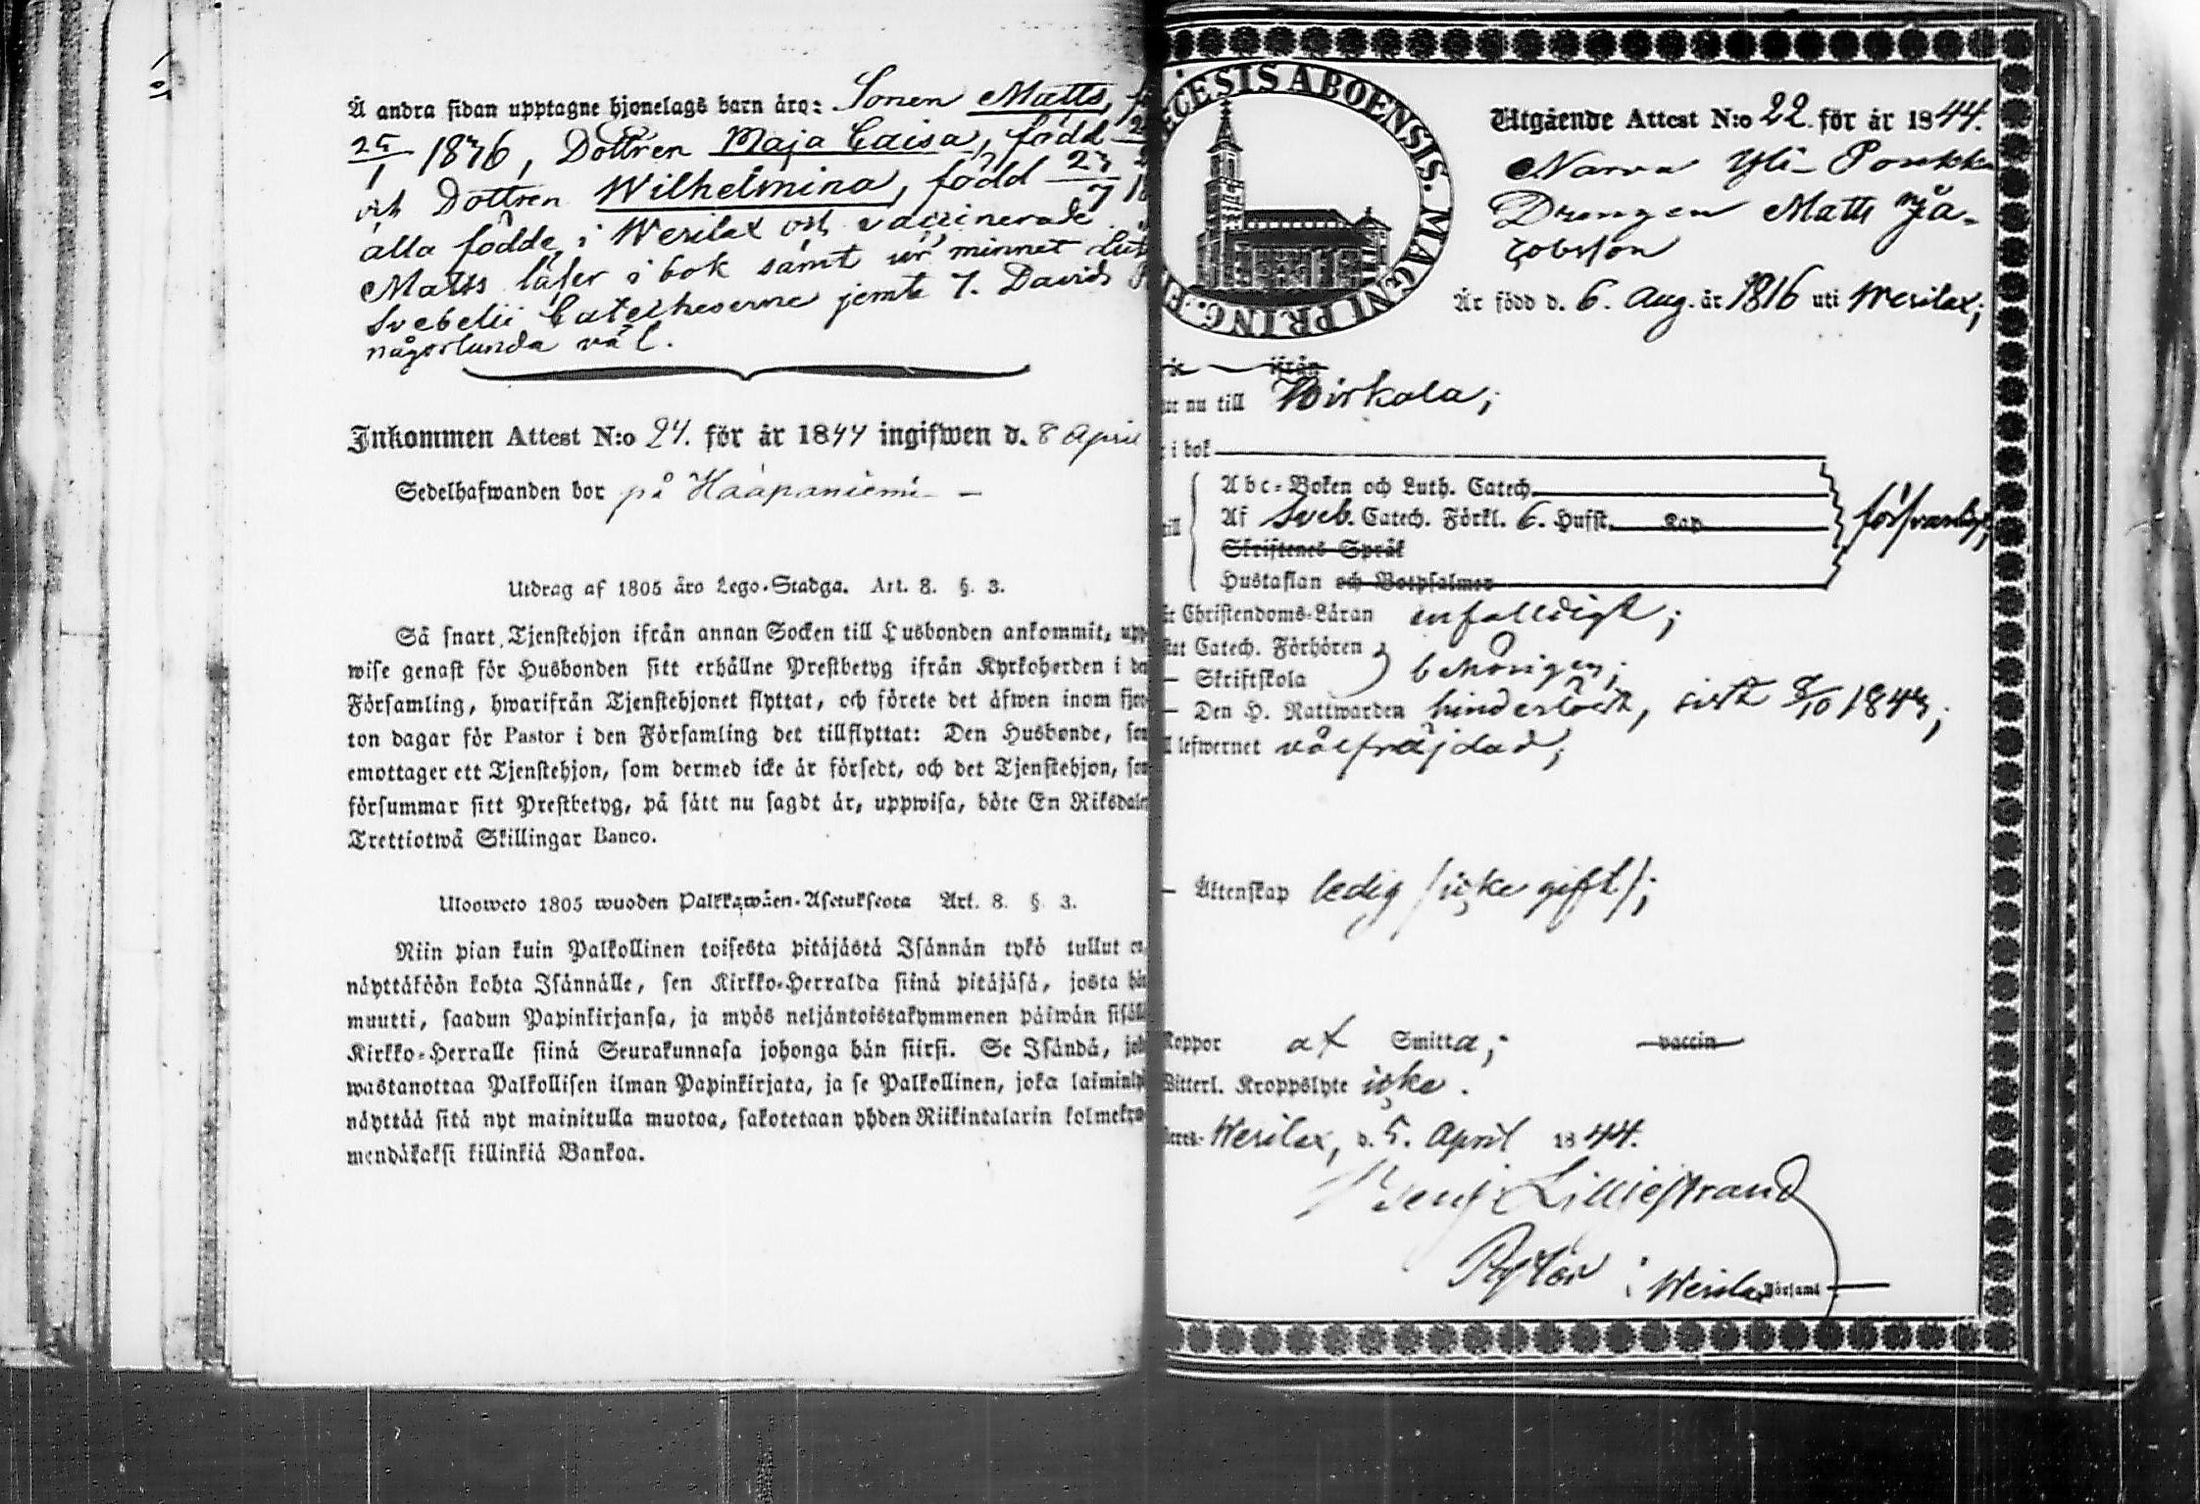 Å andra sidan upptagne hjonelags barn äro: Sonen Matts,
25/1 1836, Dottren Maja Caisa, född
och Dottren Wilhelmina, född 27/7
alla födde i Wesilax och vaccinerade
Matts läser i bok samt ur minnet Luth
Svebelii Catecheserne jemte 7. Davids
någorlunda väl.
Inkommen Attest N:o 24. för år 1844 ingifwen d. 8 April
Sedelhafwanden bor på Haapaniemi
Utdrag af 1805 års Lego-Stadga. Art. 8. §. 3.
Så snart Tjenstehjon ifrån annan Socken till Husbonden ankommit, upp-
wise genast för Husbonden sitt erhållne Prestbetyg ifrån Kyrkoherden i den
Församling, hwarifrån Tjenstehjonet flyttat, och förete det äfwen inom fjor-
ton dagar för Pastor i den Församling det tillflyttat: Den Husbonde, som
emottager ett Tjenstehjon, som dermed icke är försedt, och det Tjenstehjon, som
försummar sitt Prestbetyg, på sätt nu sagdt är, uppwisa, böte En Riksdaler
Trettiotwå Skillingar Banco.
Uloowето 1805 wuoden Palkkawäen-Asetuksesta Art. 8. § 3.
Niin pian kuin Palkollinen toisesta pitäjästä Isännän tykö tullut on,
näyttäköön kohta Isännälle, sen Kirkko-Herralda siinä pitäjäsä, josta hän
muutti, saadun Papinkirjansa, ja myös neljäntoistakymmenen päiwän sisällä
Kirkko-Herralle siinä Seurakunnasa johonga hän siirsi. Se Isändä, joka
wastanottaa Palkollisen ilman Papinkirjata, ja se Palkollinen, joka laiminlyö
näyttää sitä nyt mainitulla muotoa, sakotetaan yhden Riikintalarin kolmekym-
mendäkaksi killinkiä Bankoa.
ECESIS ABOENSIS. MAGNI PRING.
Utgående Attest N:o 22. för år 1844.
Narva Yli-Poukka
Drengen Matts Ja-
cobsson
Är född d. 6. Aug. år 1816 uti Wesilax;
ifrån
nu till Birkala;
i bok
Abc-Boken och Luth. Catech.
Af Sveb. Catech. Förkl. 6. Hufst. Kap försvarligt;
Skriftenes Språk
Hustaflan och Botpsalmer
Christendoms-Läran enfalldigt;
Catech. Förhören
— Skriftskola behörigen;
— Den H. Nattwarden hinderlöst, sist 8/10 1843;
lefwernet välfräjdad;
— Äktenskap ledig /icke gift/;
Koppor af Smitta; vaccin
Witterl. Kroppslyte icke.
Wesilax, d. 5. April 1844.
Benj. Lilliestrand
Pastor i Wesilax Församl.